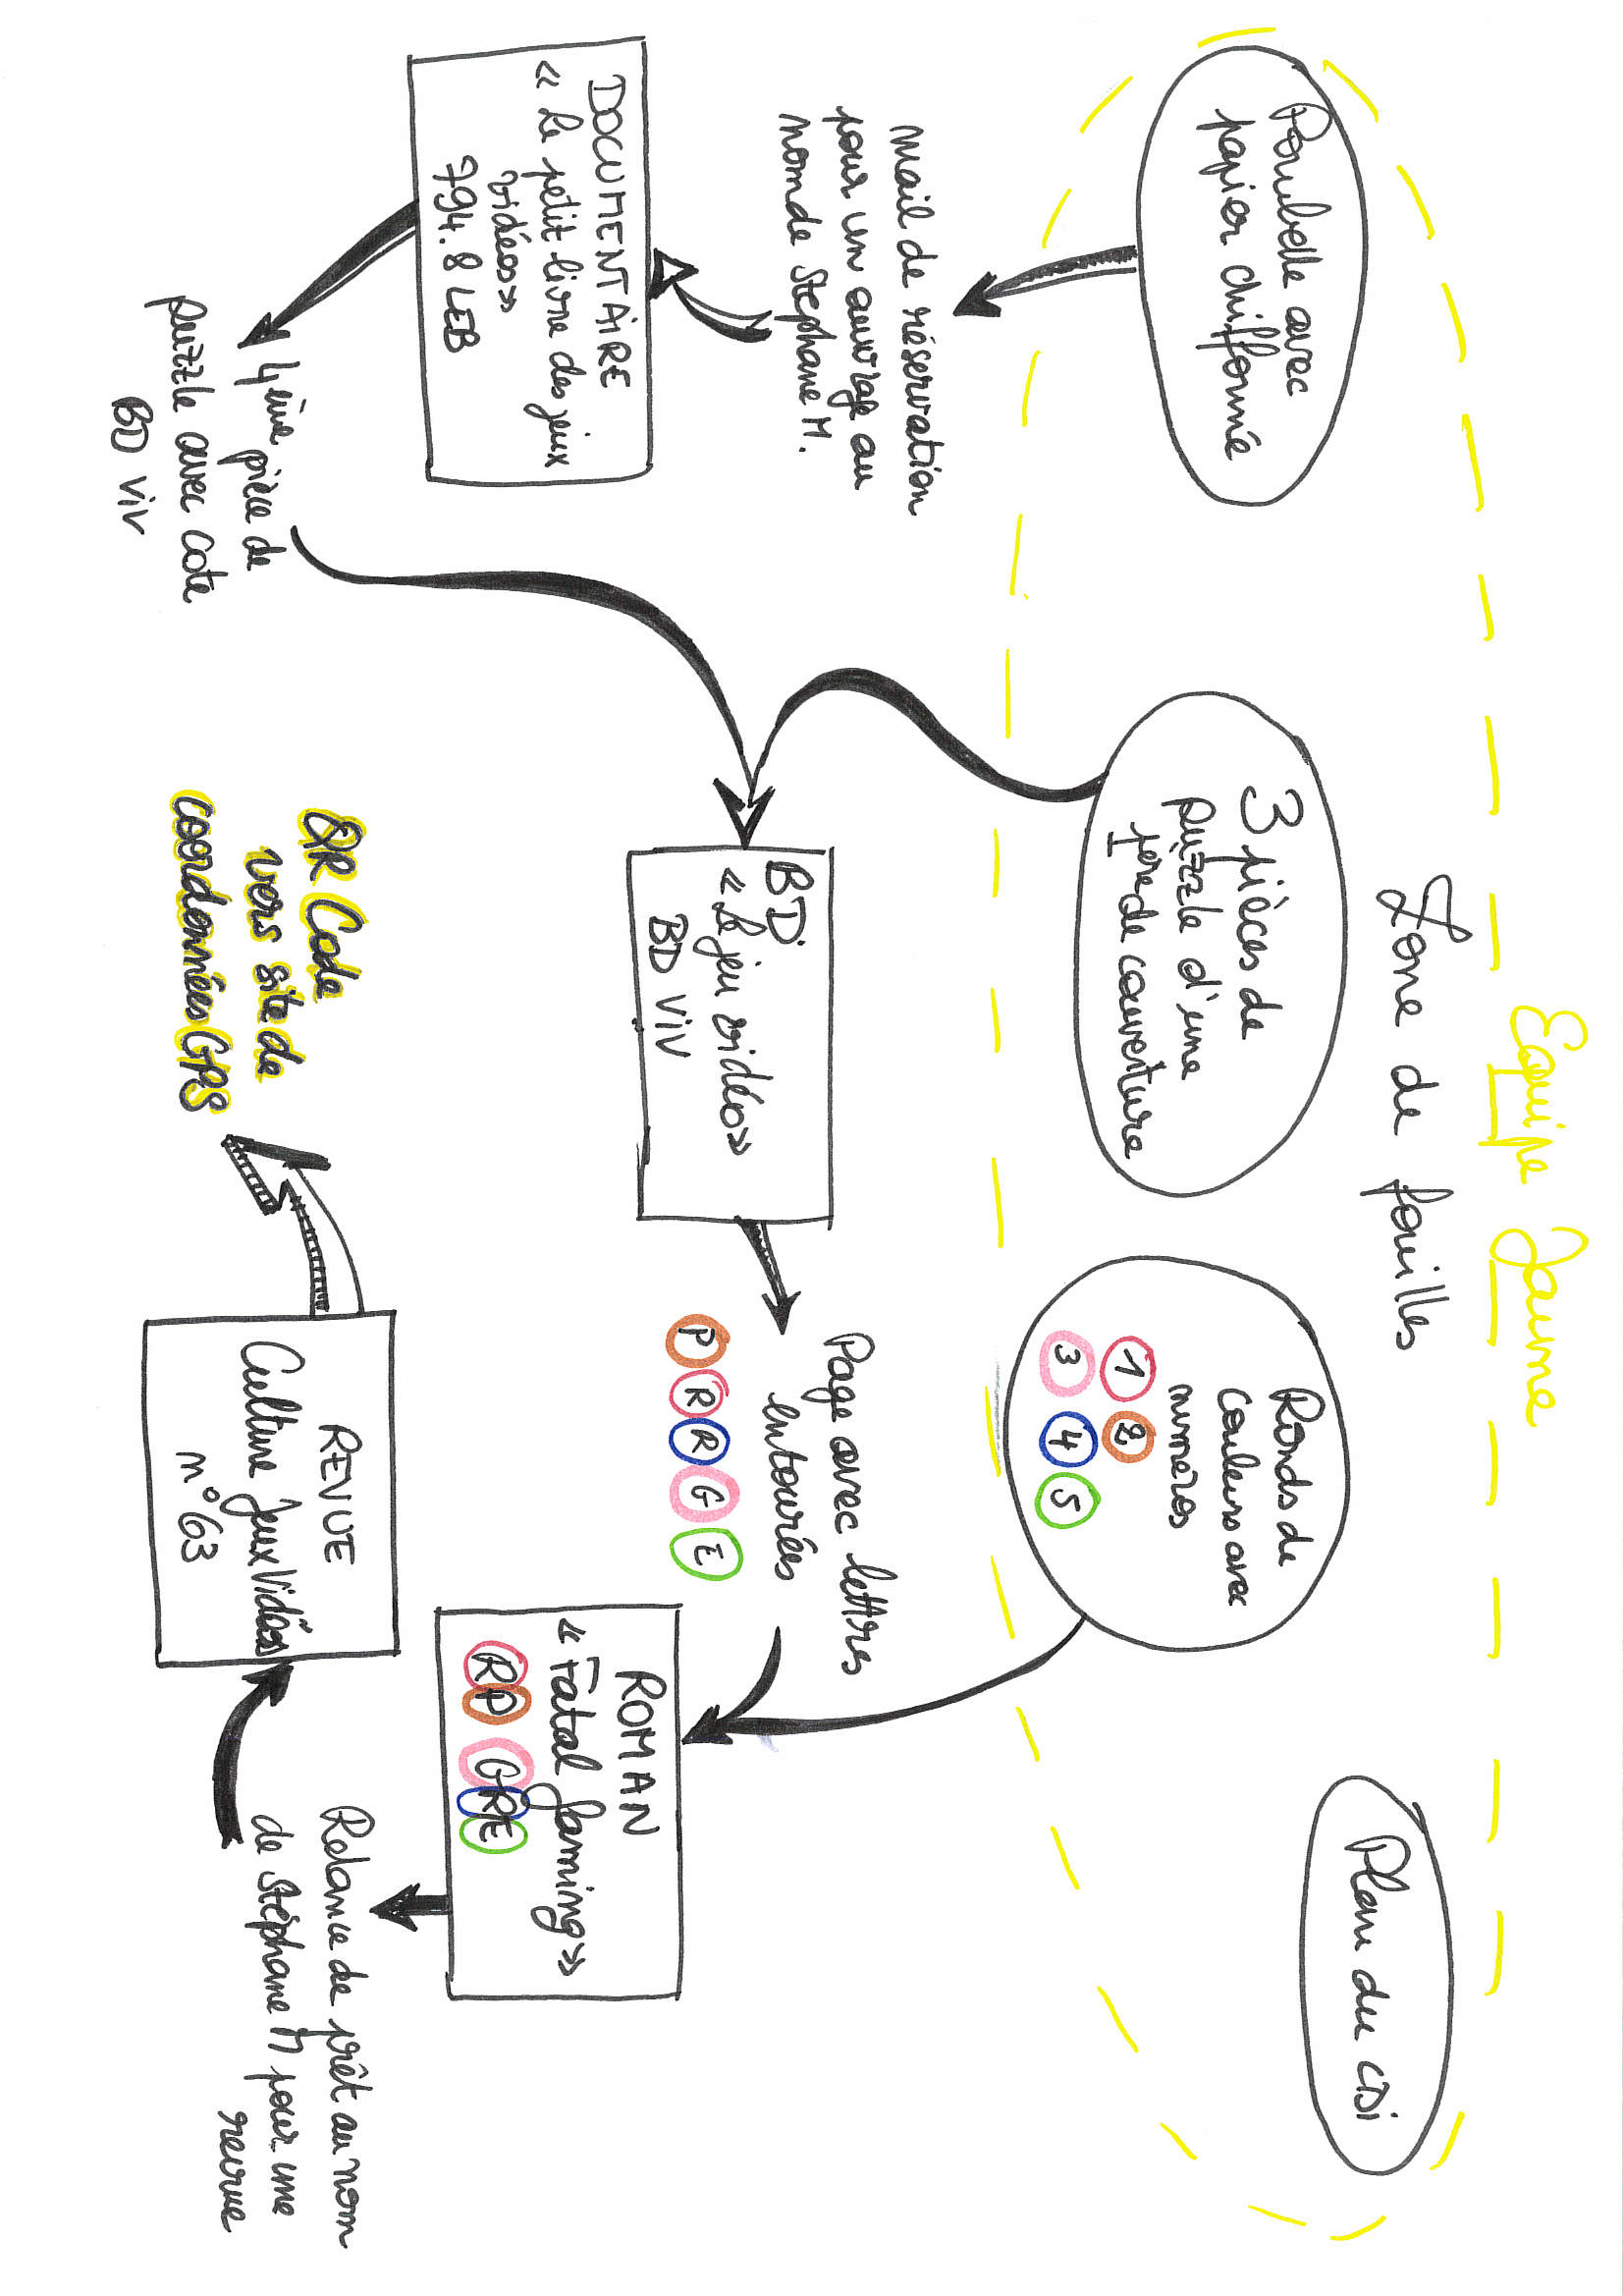 Equipe Jaune
Zone de fouilles
Poubelle avec
papier chiffonné
3 pièces de
puzzle d'une
1ère de couverture
Ronds de
couleurs avec
numéros
1 2
3 4 5
Plan du CDi
mail de réservation
pour un ouvrage au
nom de Stephane M.
DOCUMENTAiRE
« Le petit livre des jeux
vidéos»
794.8 LEB
4ème pièce de
puzzle avec cote
BD Viv
BD
« Le jeu vidéo»
BD ViV
Page avec lettres
entourées
P R R G E
ROMAN
« Fatal Gaming»
RP GRE
Relance de prêt au nom
de Stéphane M pour une
revue
REVUE
Culture Jeux Vidéos
n°63
QR Code
vers site de
coordonnées GPS